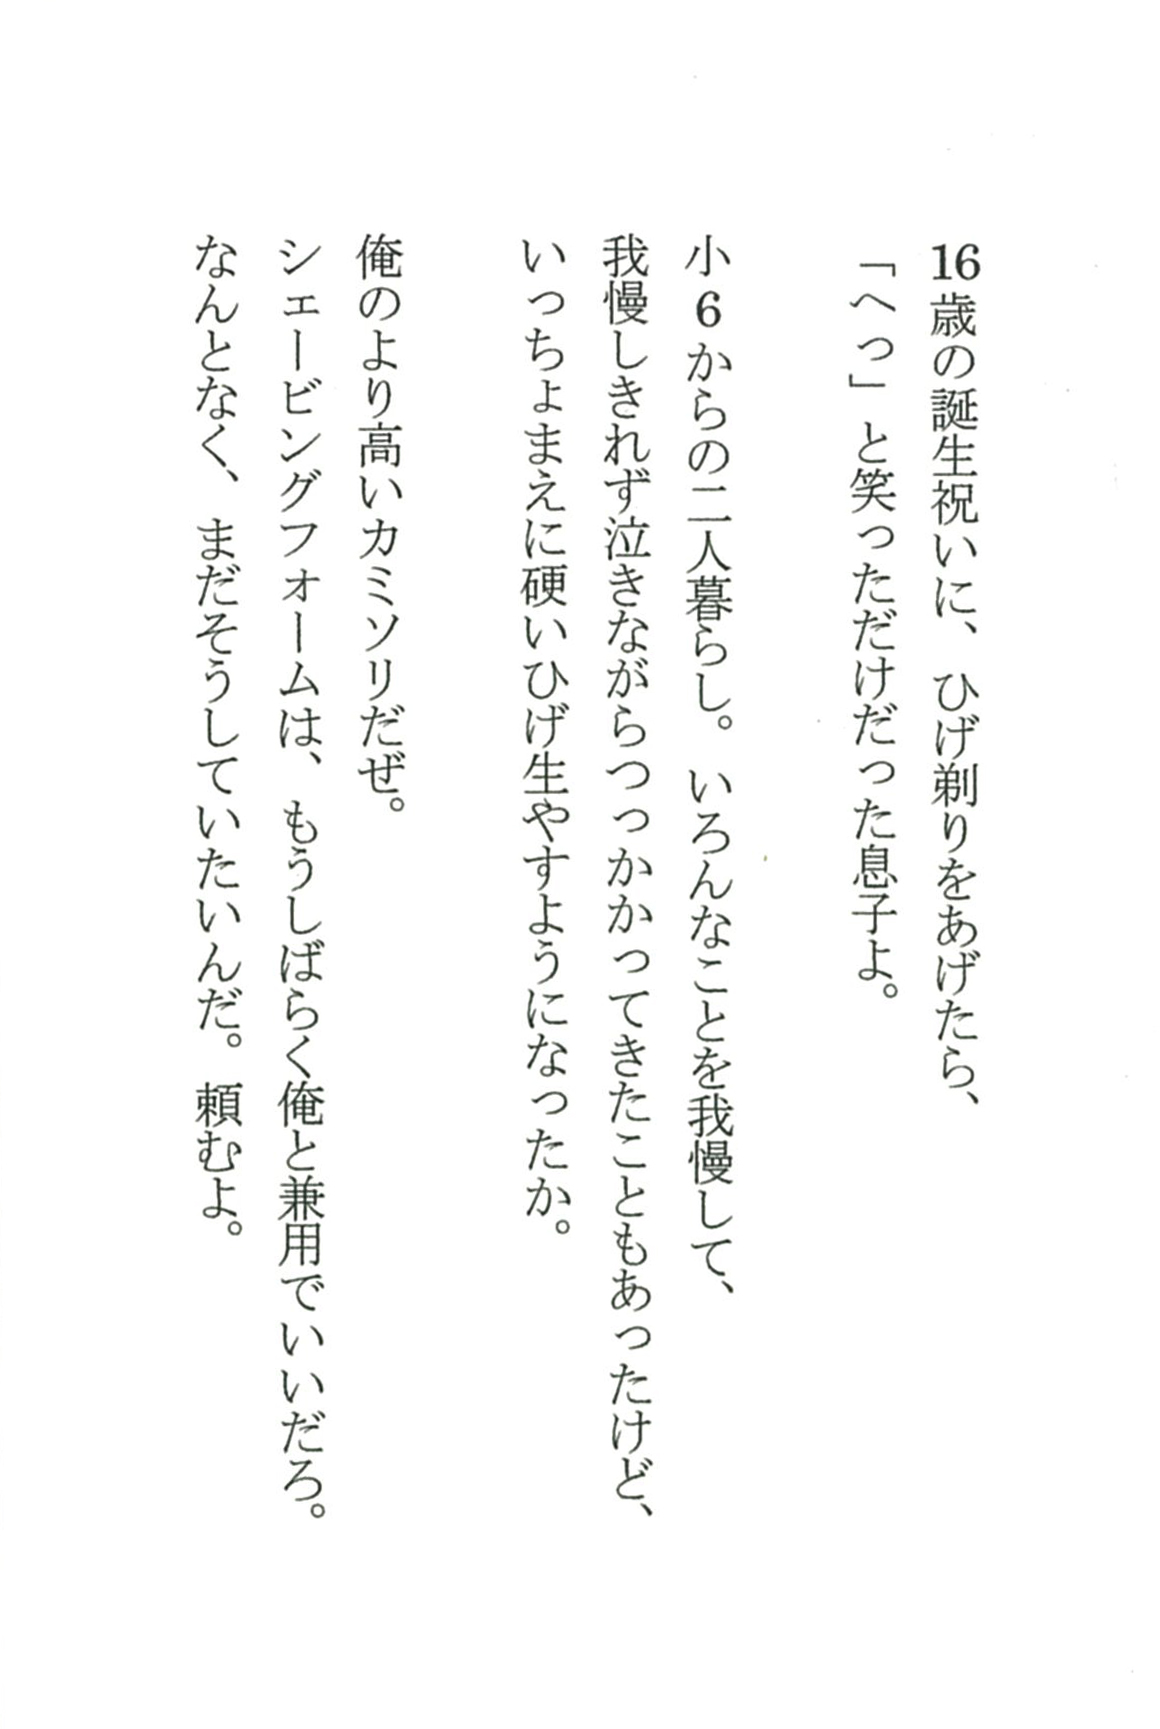 16歳の誕生祝いに、ひげ剃りをあげたら、
「へっ」と笑っただけだった息子よ。
小6からの二人暮らし。いろんなことを我慢して、
我慢しきれず泣きながらつっかかってきたこともあったけど、
いっちょまえに硬いひげ生やすようになったか。
俺のより高いカミソリだぜ。
シェービングフォームは、もうしばらく俺と兼用でいいだろ。
なんとなく、まだそうしていたいんだ。頼むよ。